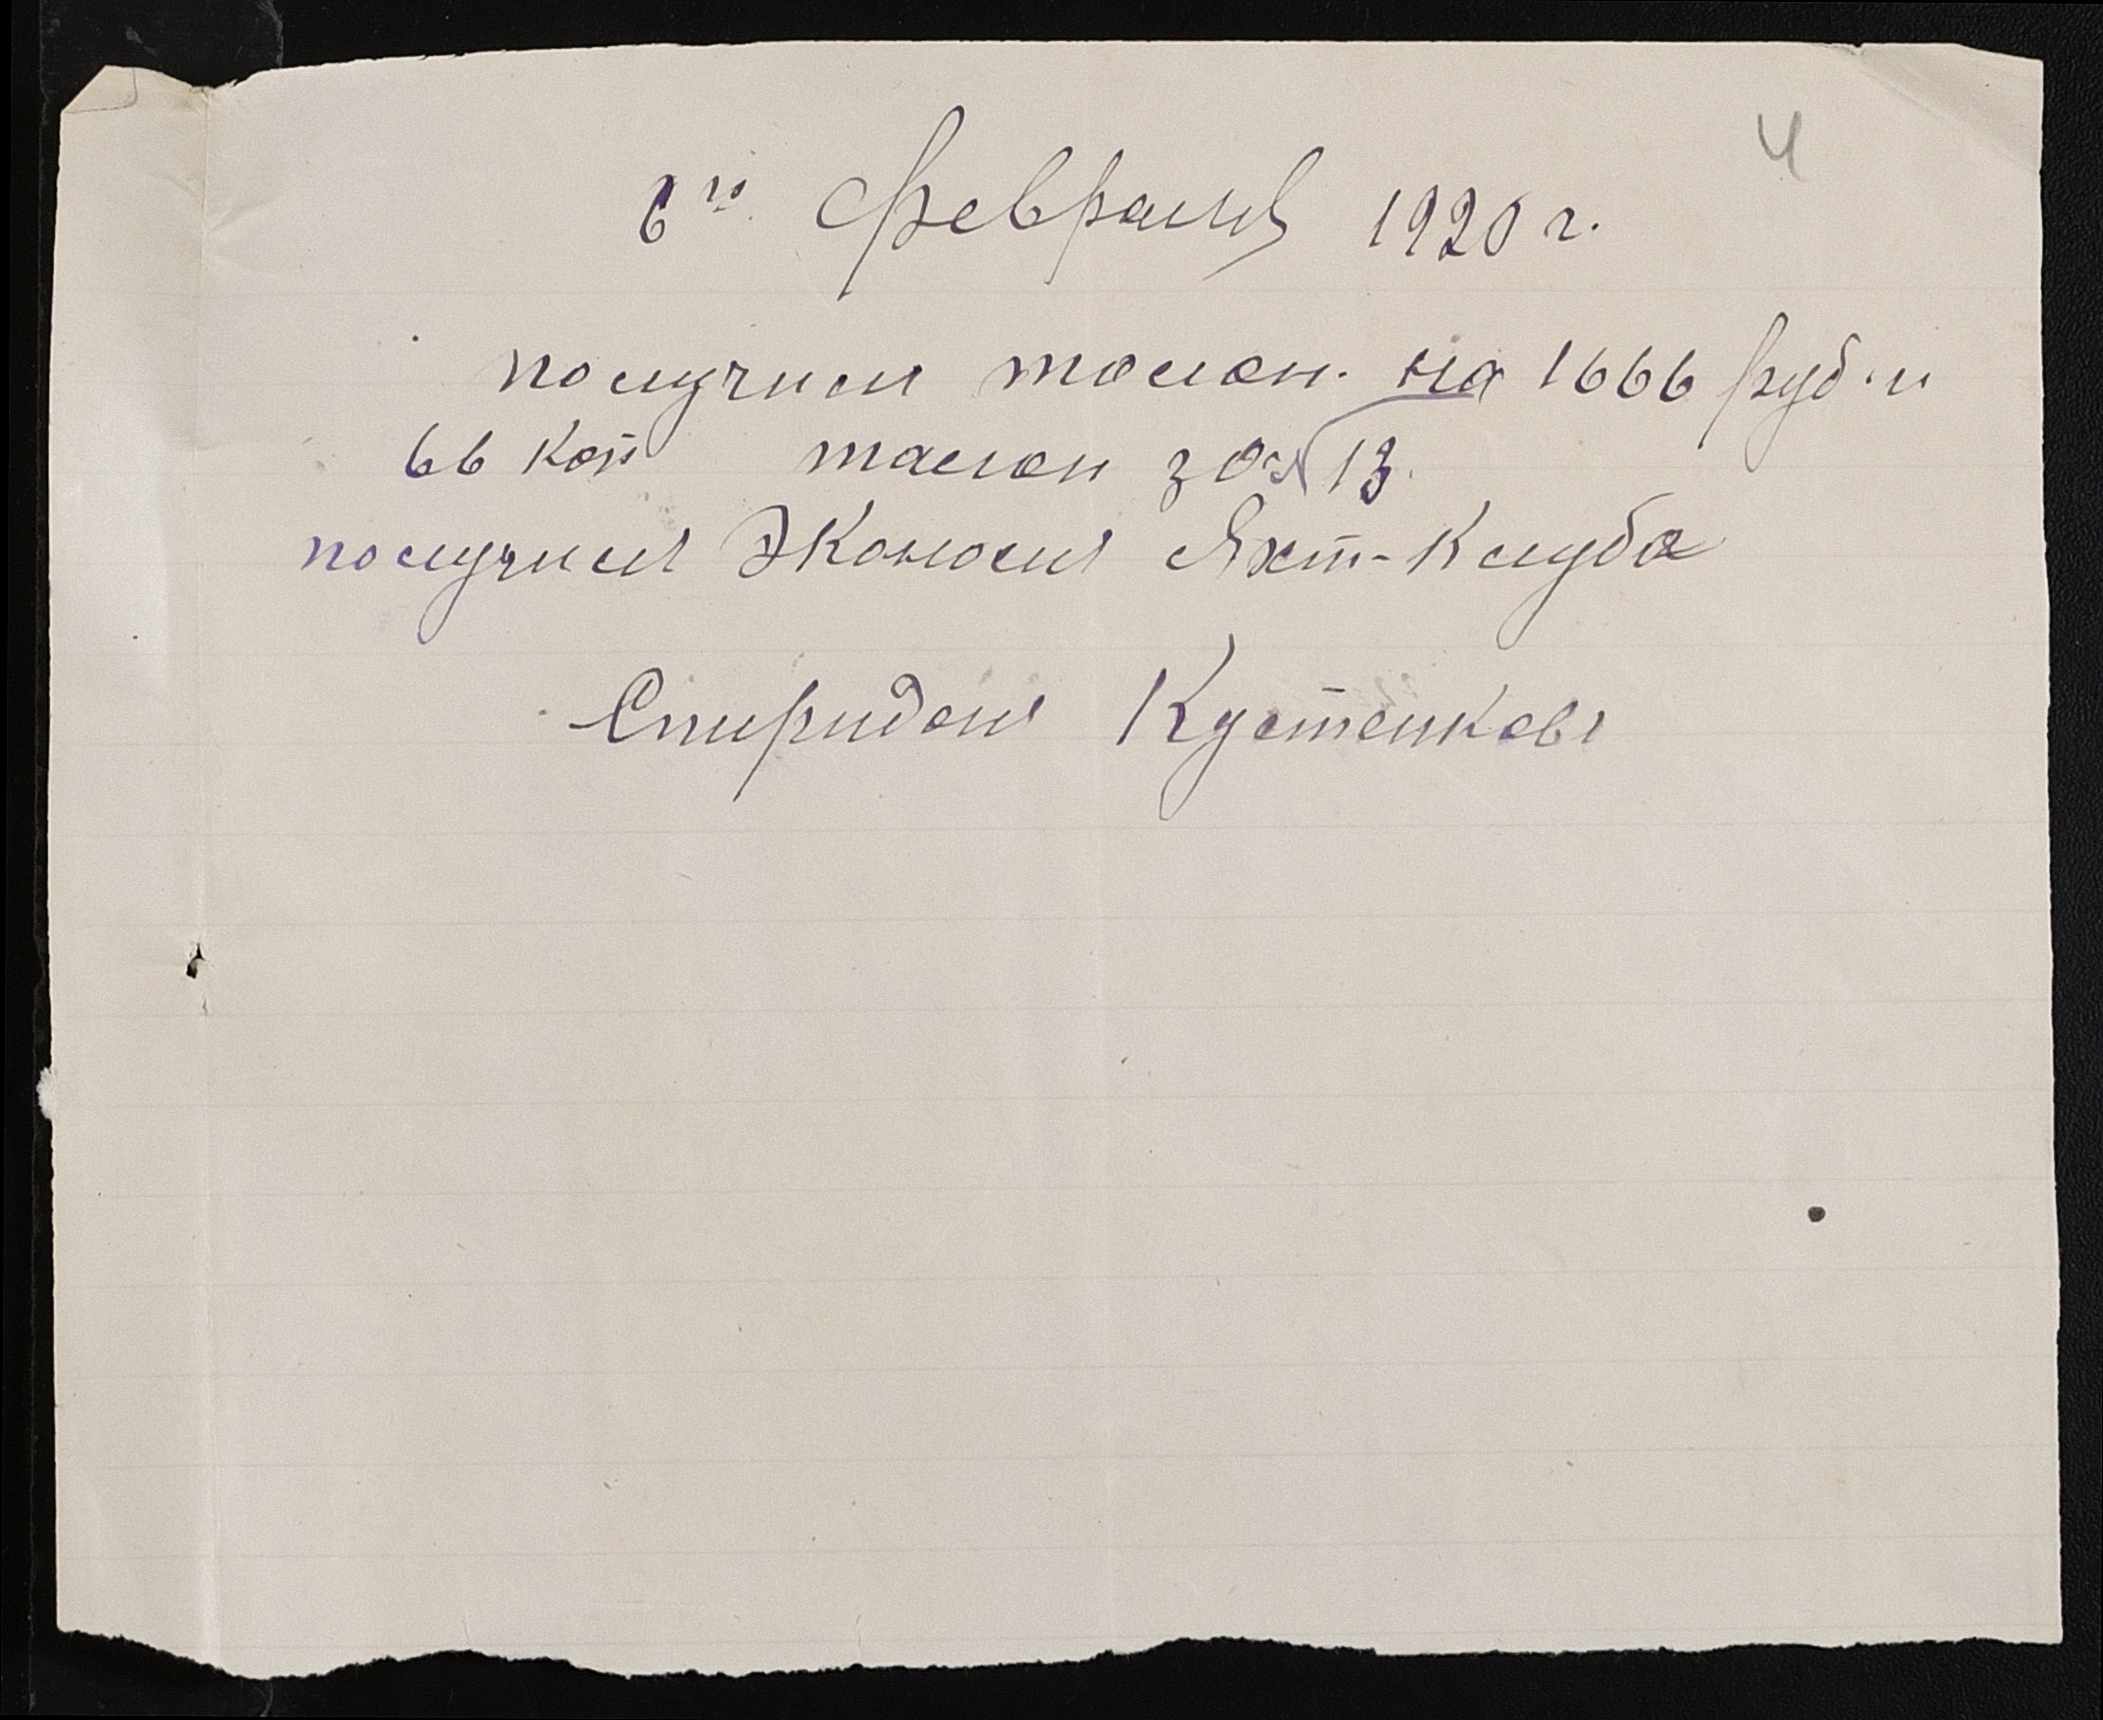 4
6го Февраля 1920 г.
получил талон. на 1666 руб. и
66 коп талон за № 13.
получилъ Экономъ Яхт-Клуба
Спиридонъ